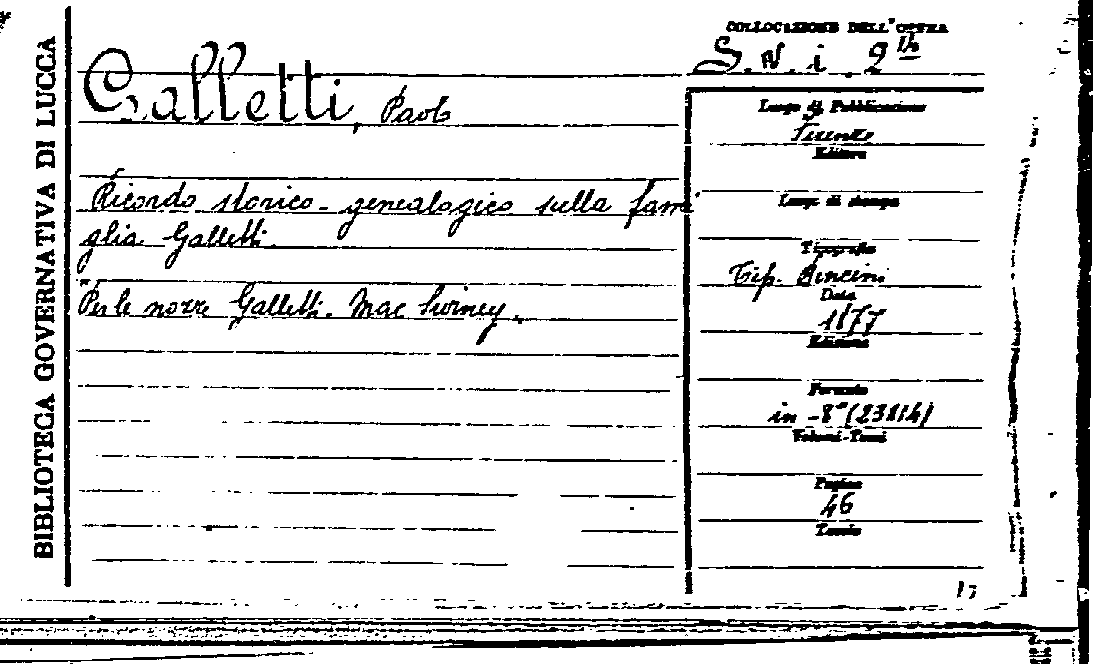 BIBLIOTECA GOVERNATIVA DI LUCCA
COLLOCAZIONE DELL'OPERA
S. N. i. 2
Galletti, Paolo
Ricordo storico-genealogico sulla fami
glia Galletti.
"Per le nozze Galletti. Mac Swiney.
Luogo di Pubblicazione
Firenze
Editore
Luogo di stampa
Tipografia
Tip. Bencini
Data
1877
Edizione
Formato
in -8° (23X14)
Volumi-Tomi
Pagine
46
Tavole